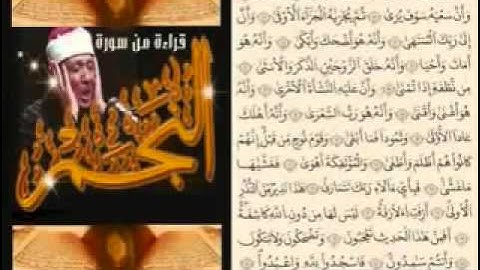 قراءة من سورة
النجم
وَأَنَّ سَعْيَهُۥ سَوْفَ يُرَىٰ ۝ ثُمَّ يُجْزَىٰهُ ٱلْجَزَآءَ ٱلْأَوْفَىٰ ۝ وَأَنَّ
إِلَىٰ رَبِّكَ ٱلْمُنتَهَىٰ ۝ وَأَنَّهُۥ هُوَ أَضْحَكَ وَأَبْكَىٰ ۝ وَأَنَّهُۥ هُوَ
أَمَاتَ وَأَحْيَا ۝ وَأَنَّهُۥ خَلَقَ ٱلزَّوْجَيْنِ ٱلذَّكَرَ وَٱلْأُنثَىٰ ۝
مِن نُّطْفَةٍ إِذَا تُمْنَىٰ ۝ وَأَنَّ عَلَيْهِ ٱلنَّشْأَةَ ٱلْأُخْرَىٰ ۝ وَأَنَّهُۥ
هُوَ أَغْنَىٰ وَأَقْنَىٰ ۝ وَأَنَّهُۥ هُوَ رَبُّ ٱلشِّعْرَىٰ ۝ وَأَنَّهُۥٓ أَهْلَكَ
عَادًا ٱلْأُولَىٰ ۝ وَثَمُودَا۟ فَمَآ أَبْقَىٰ ۝ وَقَوْمَ نُوحٍ مِّن قَبْلُ إِنَّهُمْ
كَانُوا۟ هُمْ أَظْلَمَ وَأَطْغَىٰ ۝ وَٱلْمُؤْتَفِكَةَ أَهْوَىٰ ۝ فَغَشَّىٰهَا
مَا غَشَّىٰ ۝ فَبِأَىِّ ءَالَآءِ رَبِّكَ تَتَمَارَىٰ ۝ هَٰذَا نَذِيرٌ مِّنَ ٱلنُّذُرِ
ٱلْأُولَىٰٓ ۝ أَزِفَتِ ٱلْءَازِفَةُ ۝ لَيْسَ لَهَا مِن دُونِ ٱللَّهِ كَاشِفَةٌ
۝ أَفَمِنْ هَٰذَا ٱلْحَدِيثِ تَعْجَبُونَ ۝ وَتَضْحَكُونَ وَلَا تَبْكُونَ
۝ وَأَنتُمْ سَٰمِدُونَ ۝ فَٱسْجُدُوا۟ لِلَّهِ وَٱعْبُدُوا۟ ۝